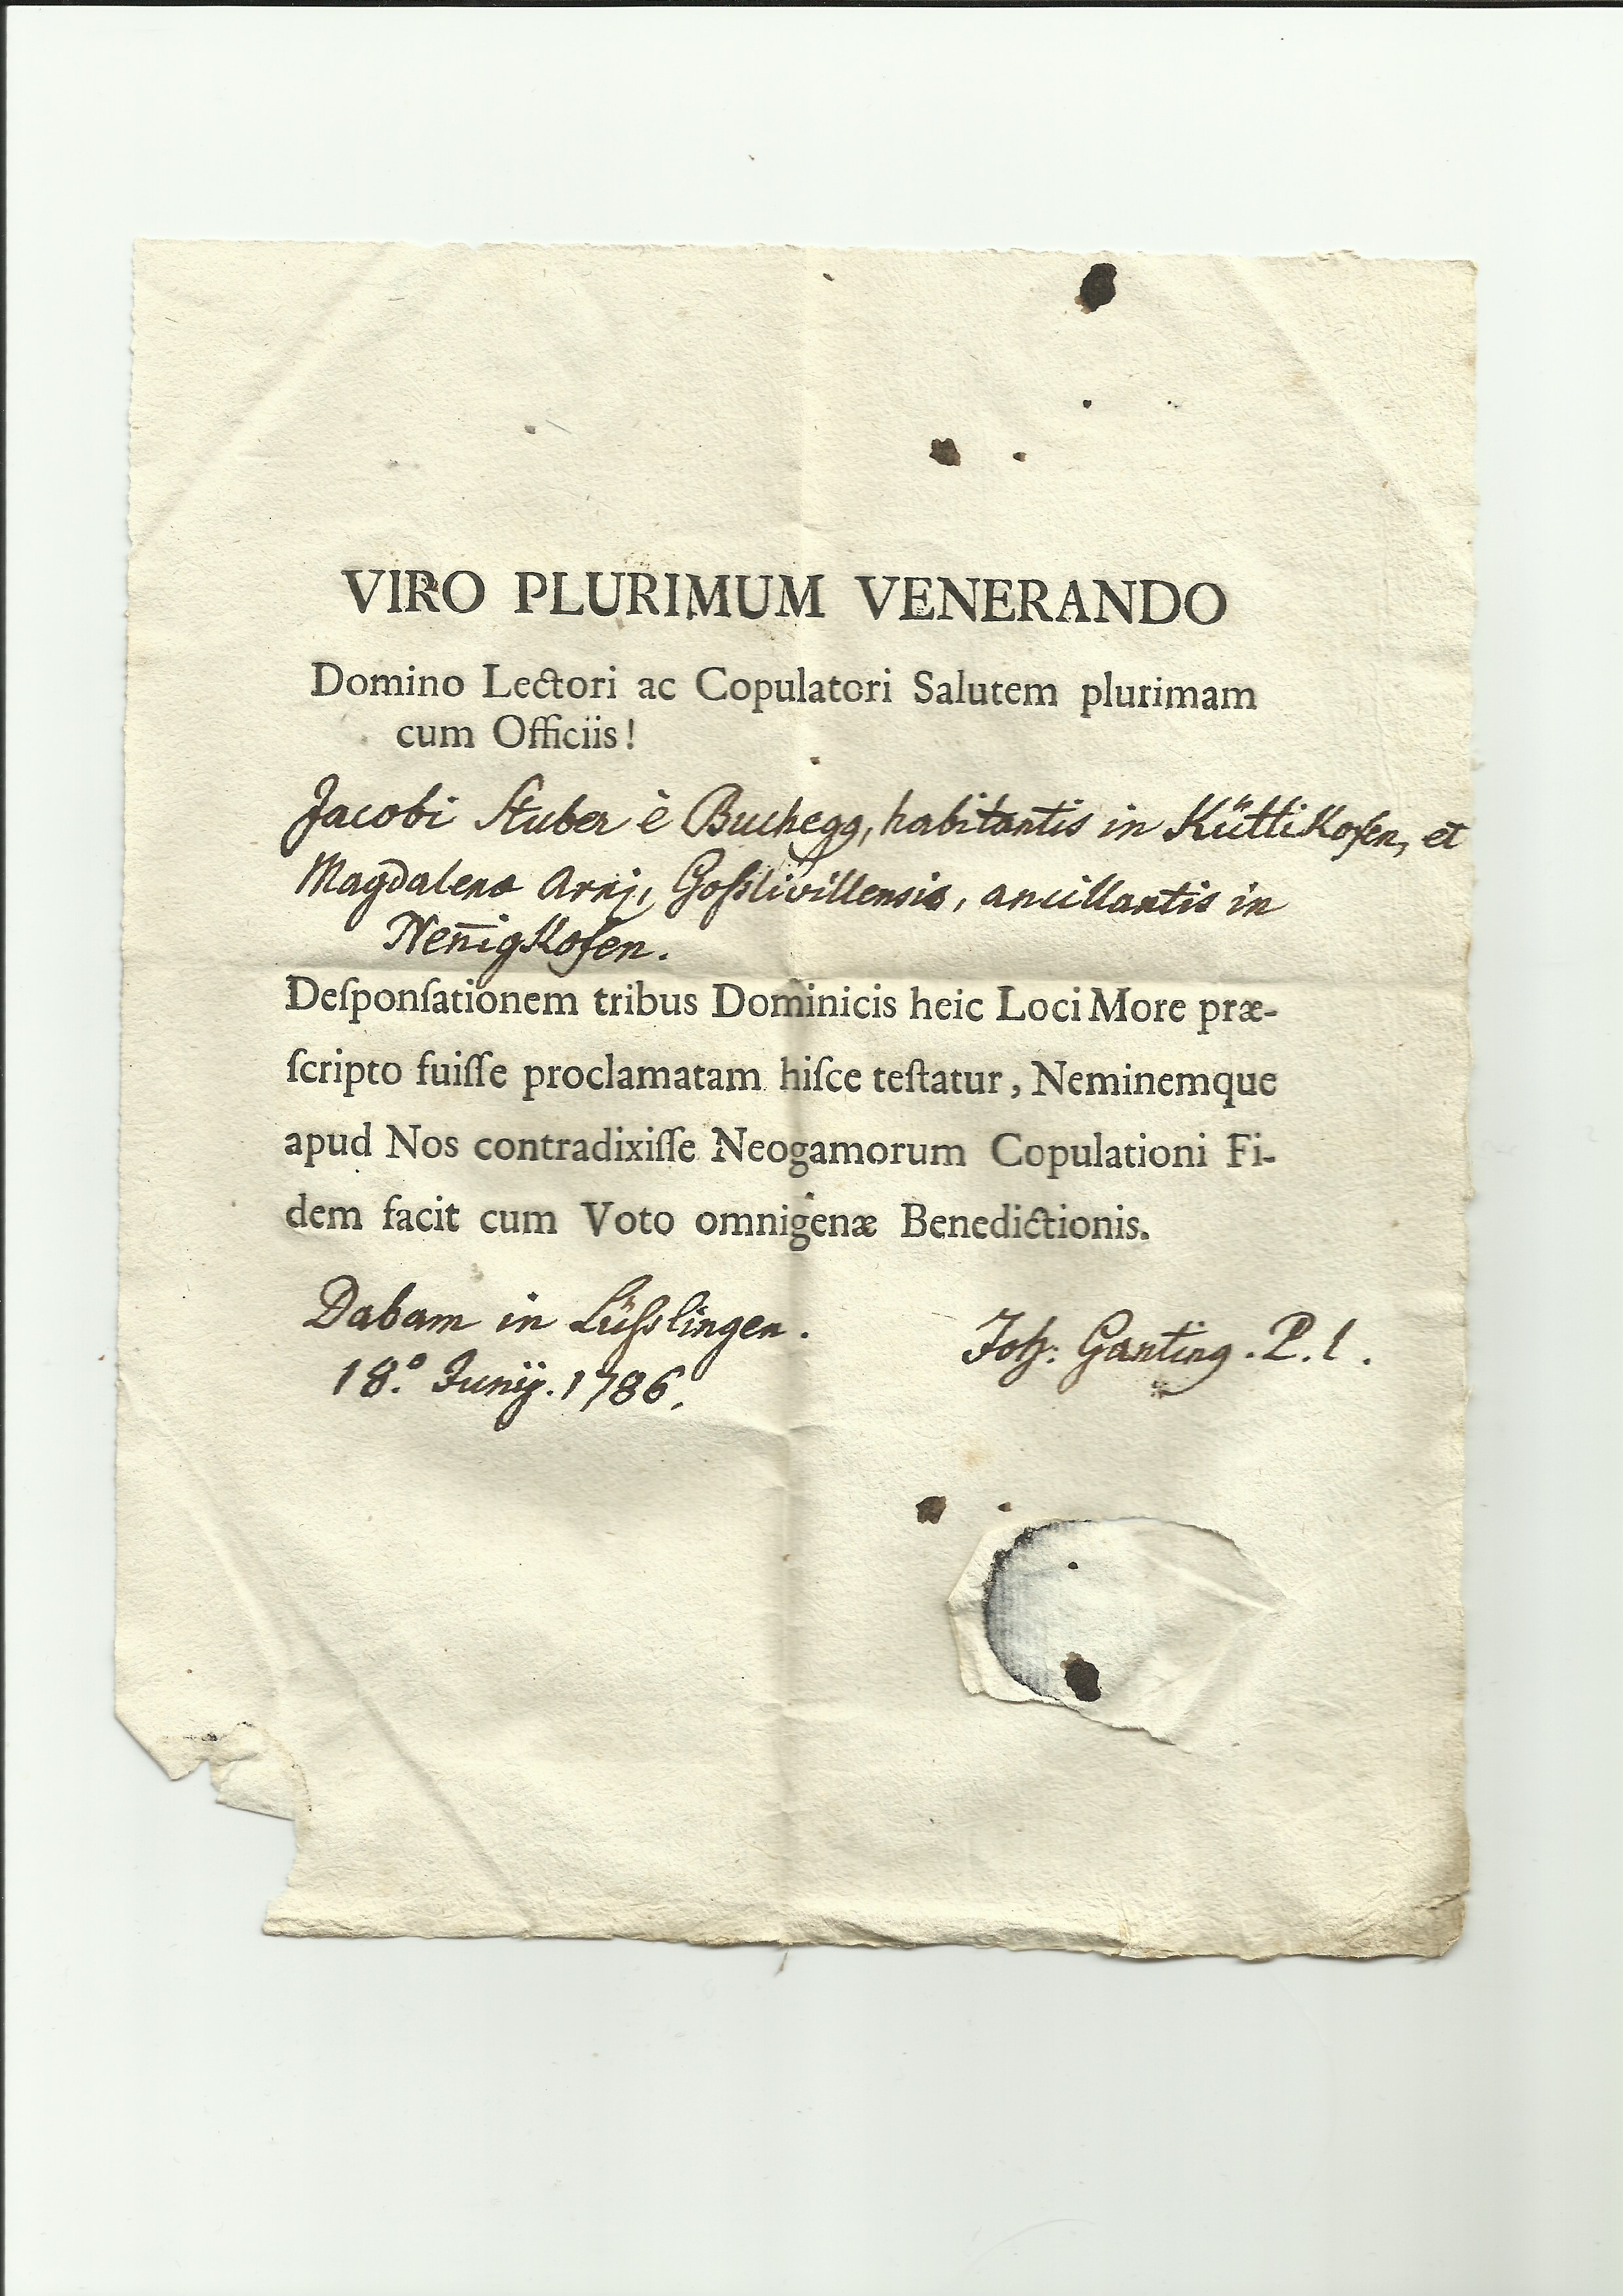 VIRO PLURIMUM VENERANDO
Domino Lectori ac Copulatori Salutem plurimam
cum Officiis!
Jacobi Stuber è Buchegg, habitantis in Küttikofen, et
Magdalena Arnj, Goßlivillensis, ancillantis in
Nen̄igkofen.
Deſponſationem tribus Dominicis heic Loci More præ-
ſcripto fuiſſe proclamatam hiſce teſtatur, Neminemque
apud Nos contradixiſſe Neogamorum Copulationi Fi-
dem facit cum Voto omnigenæ Benedictionis.
Dabam in Lüßlingen.
18.° Junij. 1786.
Joh: Ganting. P. l.